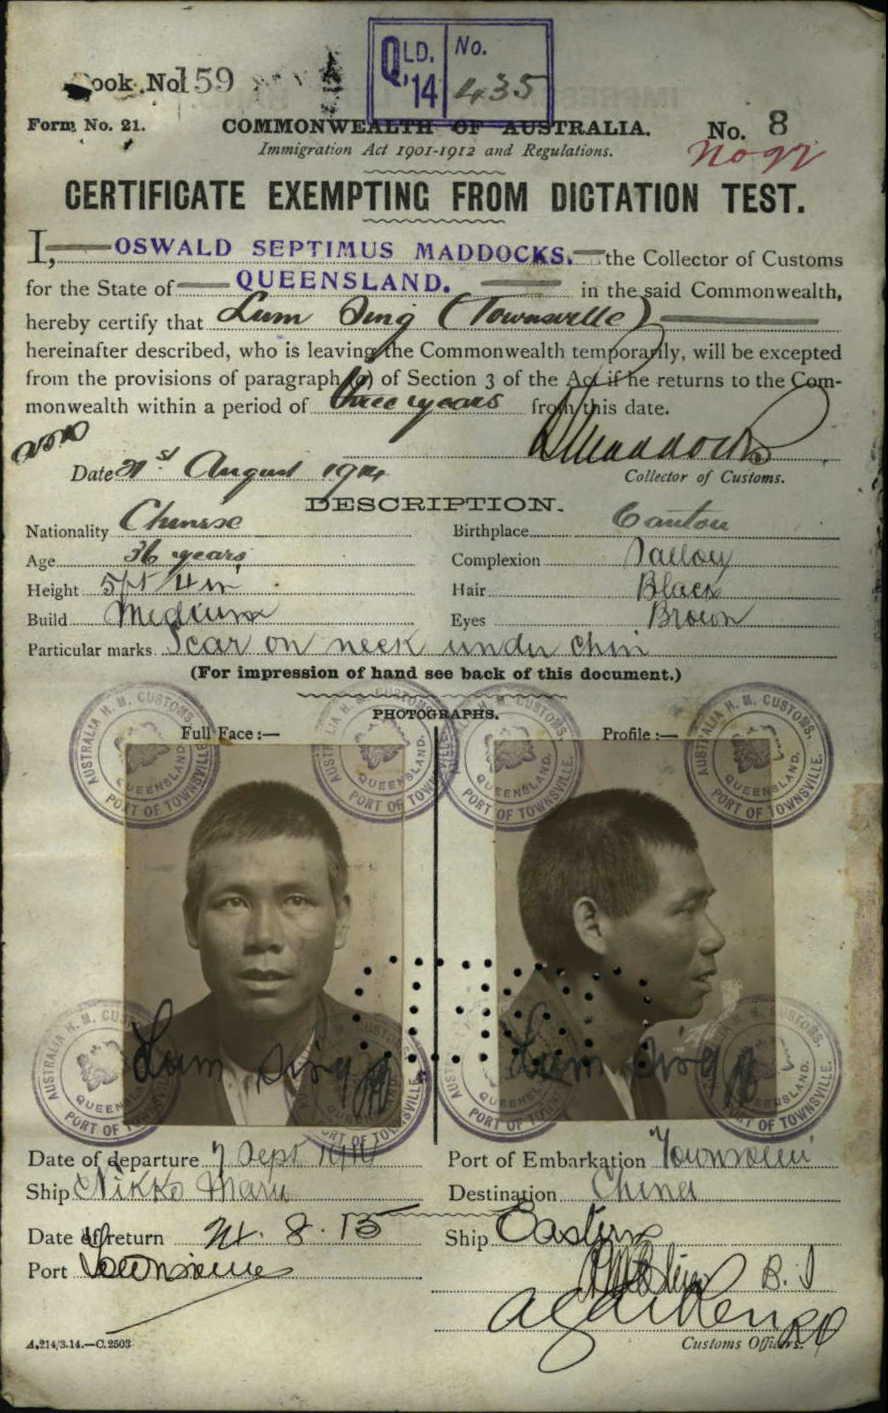 Book No. 159
QLD. No.
'14 435
Form No. 21. COMMONWEALTH OF AUSTRALIA. No. 8
Immigration Act 1901-1912 and Regulations. No 92
CERTIFICATE EXEMPTING FROM DICTATION TEST.
I, OSWALD SEPTIMUS MADDOCKS. the Collector of Customs
for the State of QUEENSLAND. in the said Commonwealth,
hereby certify that Lum Sing (Townsville)
hereinafter described, who is leaving the Commonwealth temporarily, will be excepted
from the provisions of paragraph (a) of Section 3 of the Act if he returns to the Com-
monwealth within a period of three years from this date.
OSMaddocks
Date 21st August 1914 Collector of Customs.
DESCRIPTION.
Nationality Chinese Birthplace Canton
Age 36 years Complexion Sallow
Height 5ft 4 in Hair Black
Build Medium Eyes Brown
Particular marks Scar on neck under chin
(For impression of hand see back of this document.)
PHOTOGRAPHS.
Full Face :— Profile :—
AUSTRALIA H. M. CUSTOMS. QUEENSLAND. PORT OF TOWNSVILLE.
AUSTRALIA H. M. CUSTOMS. QUEENSLAND. PORT OF TOWNSVILLE.
AUSTRALIA H. M. CUSTOMS. QUEENSLAND. PORT OF TOWNSVILLE.
AUSTRALIA H. M. CUSTOMS. QUEENSLAND. PORT OF TOWNSVILLE.
Lum Sing Lum Sing
AUSTRALIA H. M. CUSTOMS. QUEENSLAND. PORT OF TOWNSVILLE.
AUSTRALIA H. M. CUSTOMS. QUEENSLAND. PORT OF TOWNSVILLE.
Date of departure 7 Sept 1914 Port of Embarkation Townsville
Ship Nikko Maru Destination China
Date of return 24. 8. 15 Ship Eastern
Port Townsville
A.214/3.14.—C.2503. Customs Officers.